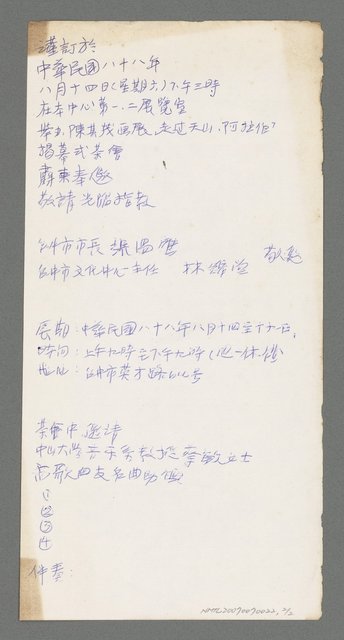 謹訂於
中華民國八十八年
八月十四日(星期六)下午三時
在本中心第一.二展覽室
舉辦,陳其茂画展,走过天山,阿拉伯
揭幕式茶會
蔚柬奉邀
敬請 光臨指教
台中市市長 張溫鷹
台中市文化中心主任 林輝堂 敬邀
展期:中華民國八十八年八月十四至廿六日,
時间:上午九時至下午九時(週一休館)
地址:台中市英才路600号
茶會中邀請
中山大學音樂系教授蔡敏女士
高歌四支名曲助興
①
②
③
④
伴奏:
NMTL20070070022, 2/2